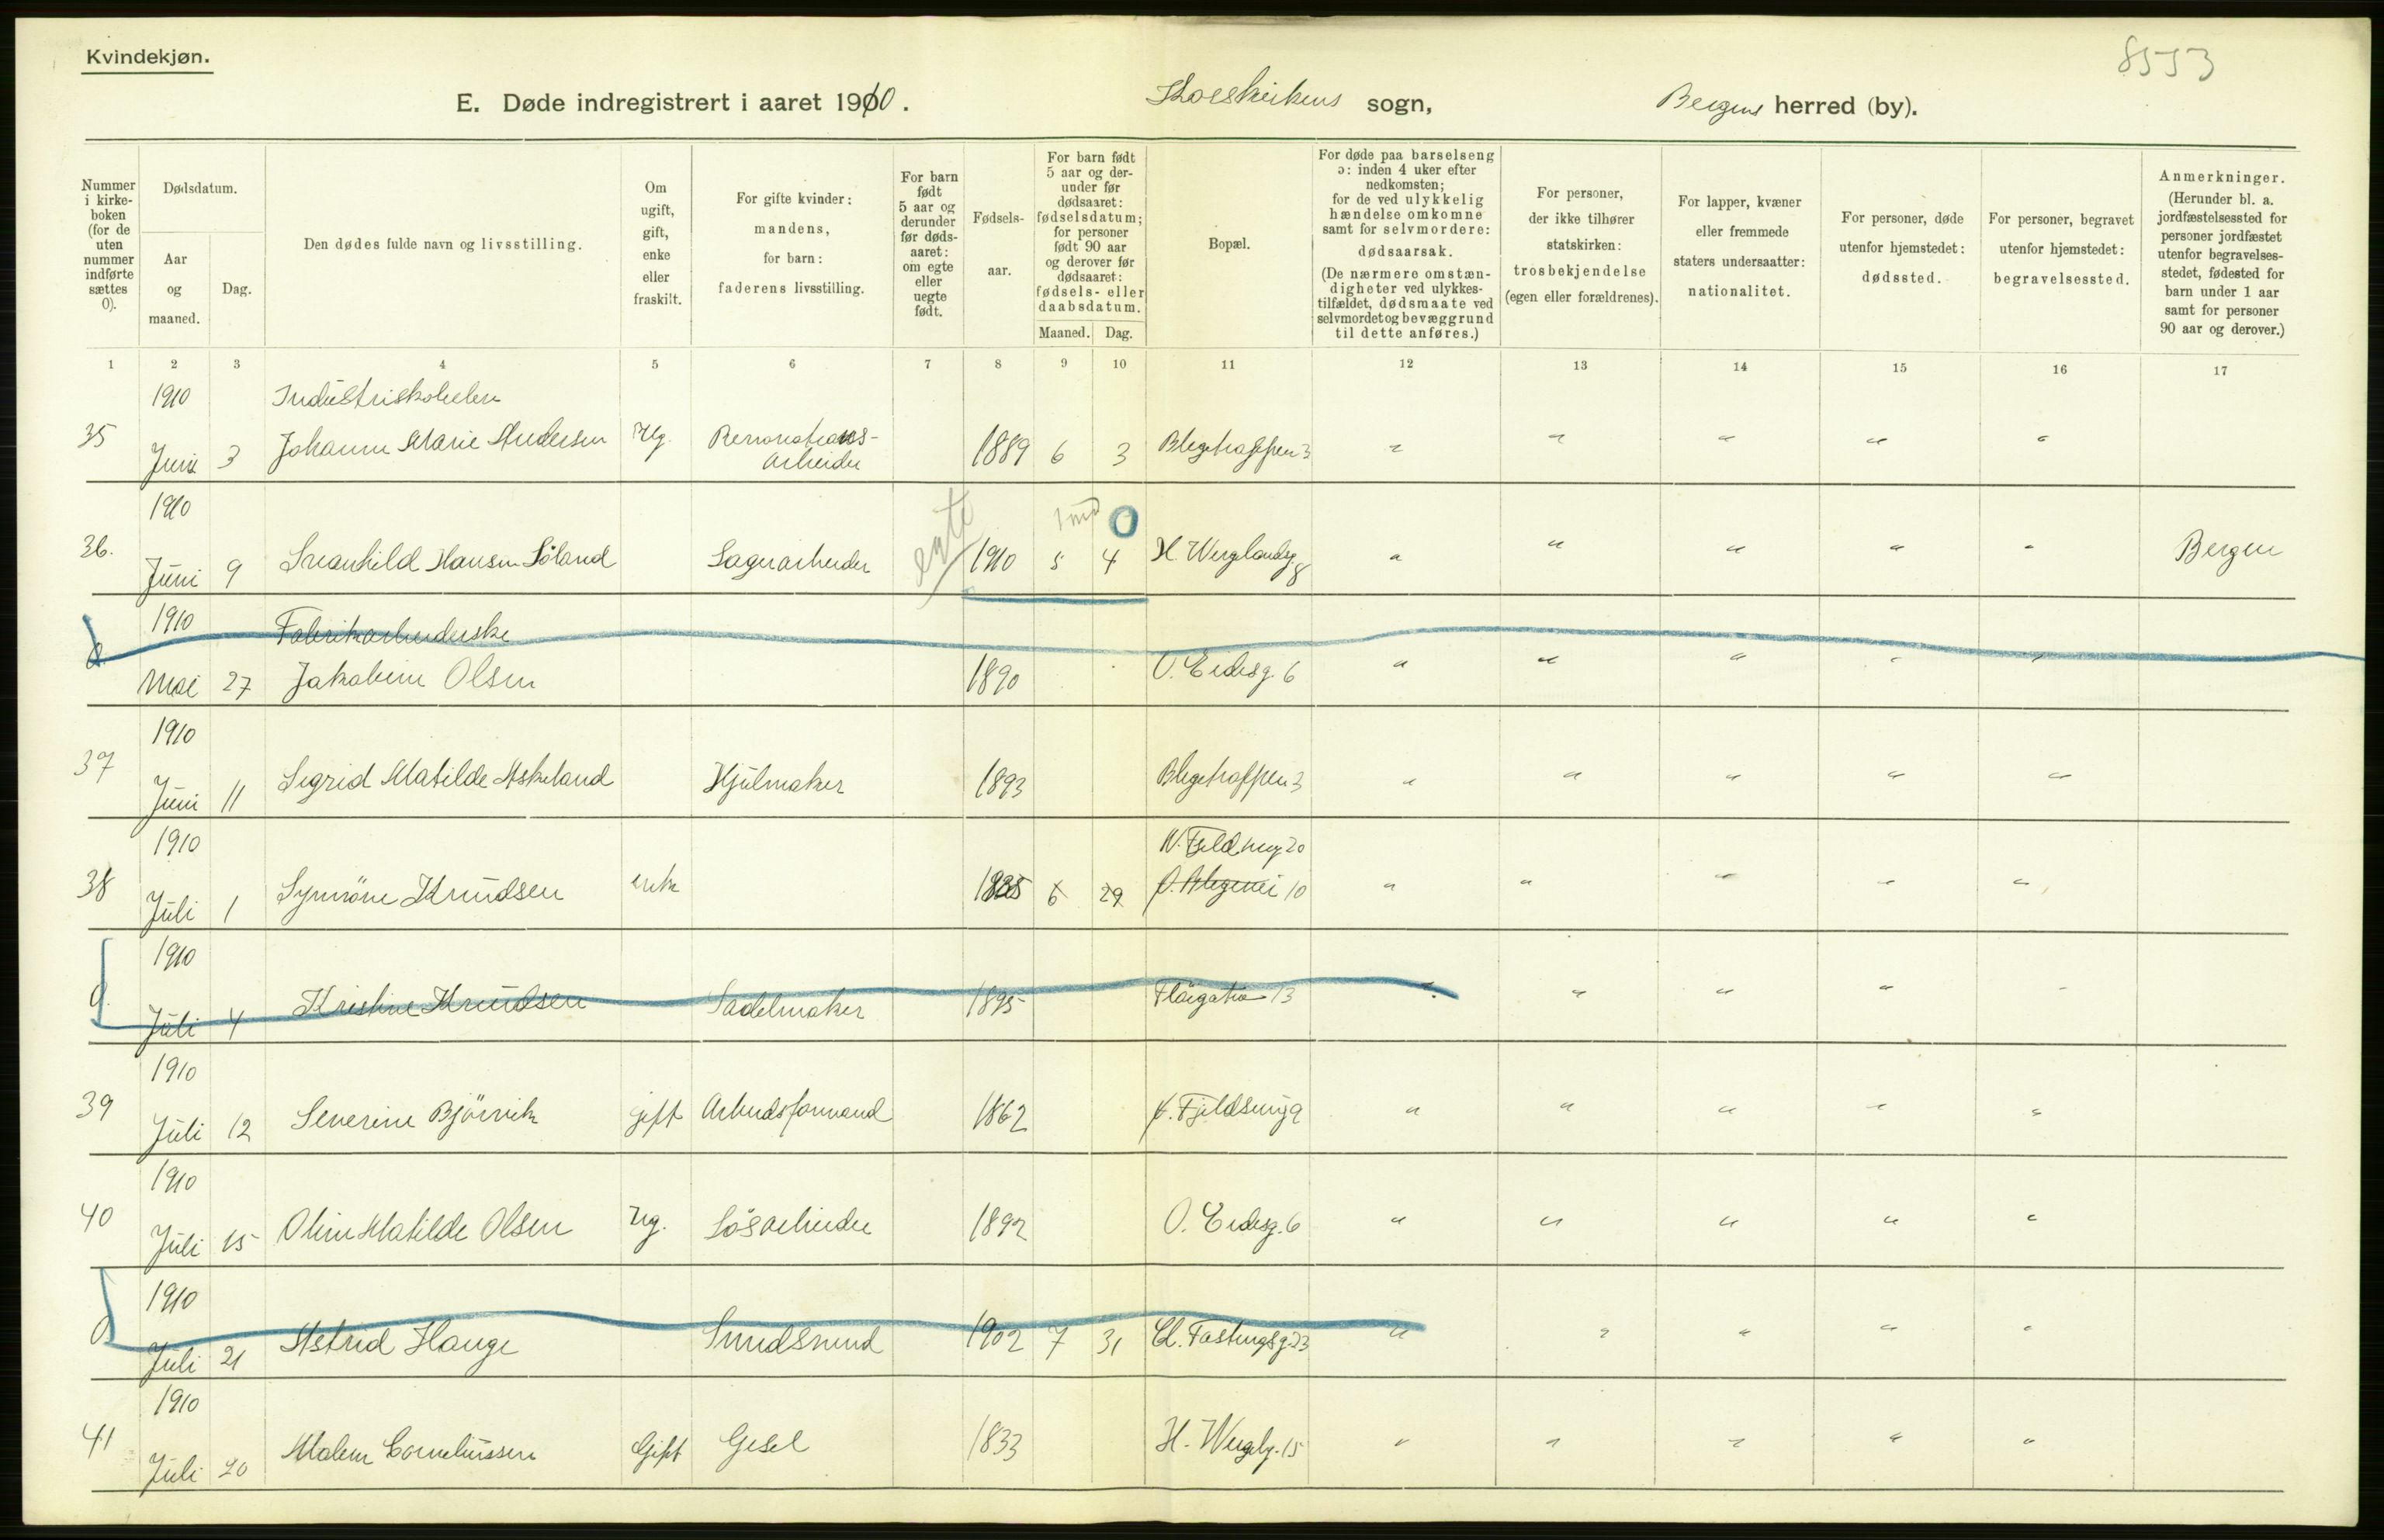 Kvindekjøn.
8553
E. Døde indregistrert i aaret 1910. Korskirkens sogn, Bergens herred (by).
Nummer i kirkeboken (for de uten nummer indførte sættes 0).
Dødsdatum.
Aar og maaned.
Dag.
Den dødes fulde navn og livsstilling.
Om ugift, gift, enke eller fraskilt.
For gifte kvinder: mandens, for barn: faderens livsstilling.
For barn født 5 aar og derunder før dødsaaret: om egte eller uegte født.
Fødselsaar.
For barn født 5 aar og derunder før dødsaaret: fødselsdatum; for personer født 90 aar og derover før dødsaaret: fødsels- eller daabsdatum.
Maaned. Dag.
Bopæl.
For døde paa barselseng ɔ: inden 4 uker efter nedkomsten; for de ved ulykkelig hændelse omkomne samt for selvmordere: dødsaarsak. (De nærmere omstændigheter ved ulykkestilfældet, dødsmaate ved selvmordet og bevæggrund til dette anføres.)
For personer, der ikke tilhører statskirken: trosbekjendelse (egen eller forældrenes).
For lapper, kvæner eller fremmede staters undersaatter: nationalitet.
For personer, døde utenfor hjemstedet: dødssted.
For personer, begravet utenfor hjemstedet: begravelsessted.
Anmerkninger. (Herunder bl. a. jordfæstelsessted for personer jordfæstet utenfor begravelsesstedet, fødested for barn under 1 aar samt for personer 90 aar og derover.)
1 2 3 4 5 6 7 8 9 10 11 12 13 14 15 16 17
1910 Industriskoleelev
35 Juni 3 Johanne Marie Andersen Ug. Renovations- 1889 6 3 Blegetrappen 3 " " " " "
Arbeider
1910 egte 1 md 0
36. Juni 9 Svanhild Hansen Söland Lagerarbeider 1910 5 4 H. Wergelandsg. 8 " " " " " Bergen
1910 Fabrikarbeiderske
0 Mai 27 Jakobine Olsen 1890 O. Eidesg. 6 " " " " "
1910
37 Juni 11 Sigrid Matilde Askeland Hjulmaker 1893 Blegetrappen 3 " " " " "
1910 N. Fjeldsmug 20
38 Juli 1 Synnöve Knudsen enke 1835 6 29 10 " " " " "
1910
0. Juli 4 Kristine Knudsen Sadelmaker 1895 13 " " " " "
1910
39 Juli 12 Severine Björnvik gift Arbeidsformand 1862 Fjeldsmug 9 " " " " "
1910
40 Juli 15 Oline Matilde Olsen Ug. Lösarbeider 1892 O. Eidesg. 6 " " " " "
1910
0 Juli 21 Astrid Hauge Smedsvend 1902 7 31 Cl. Fastingsg. 23 " " " " "
1910
41 Juli 20 Malene Corneliussen Gift Gesel 1833 H. Wergelg. 15 " " " " "